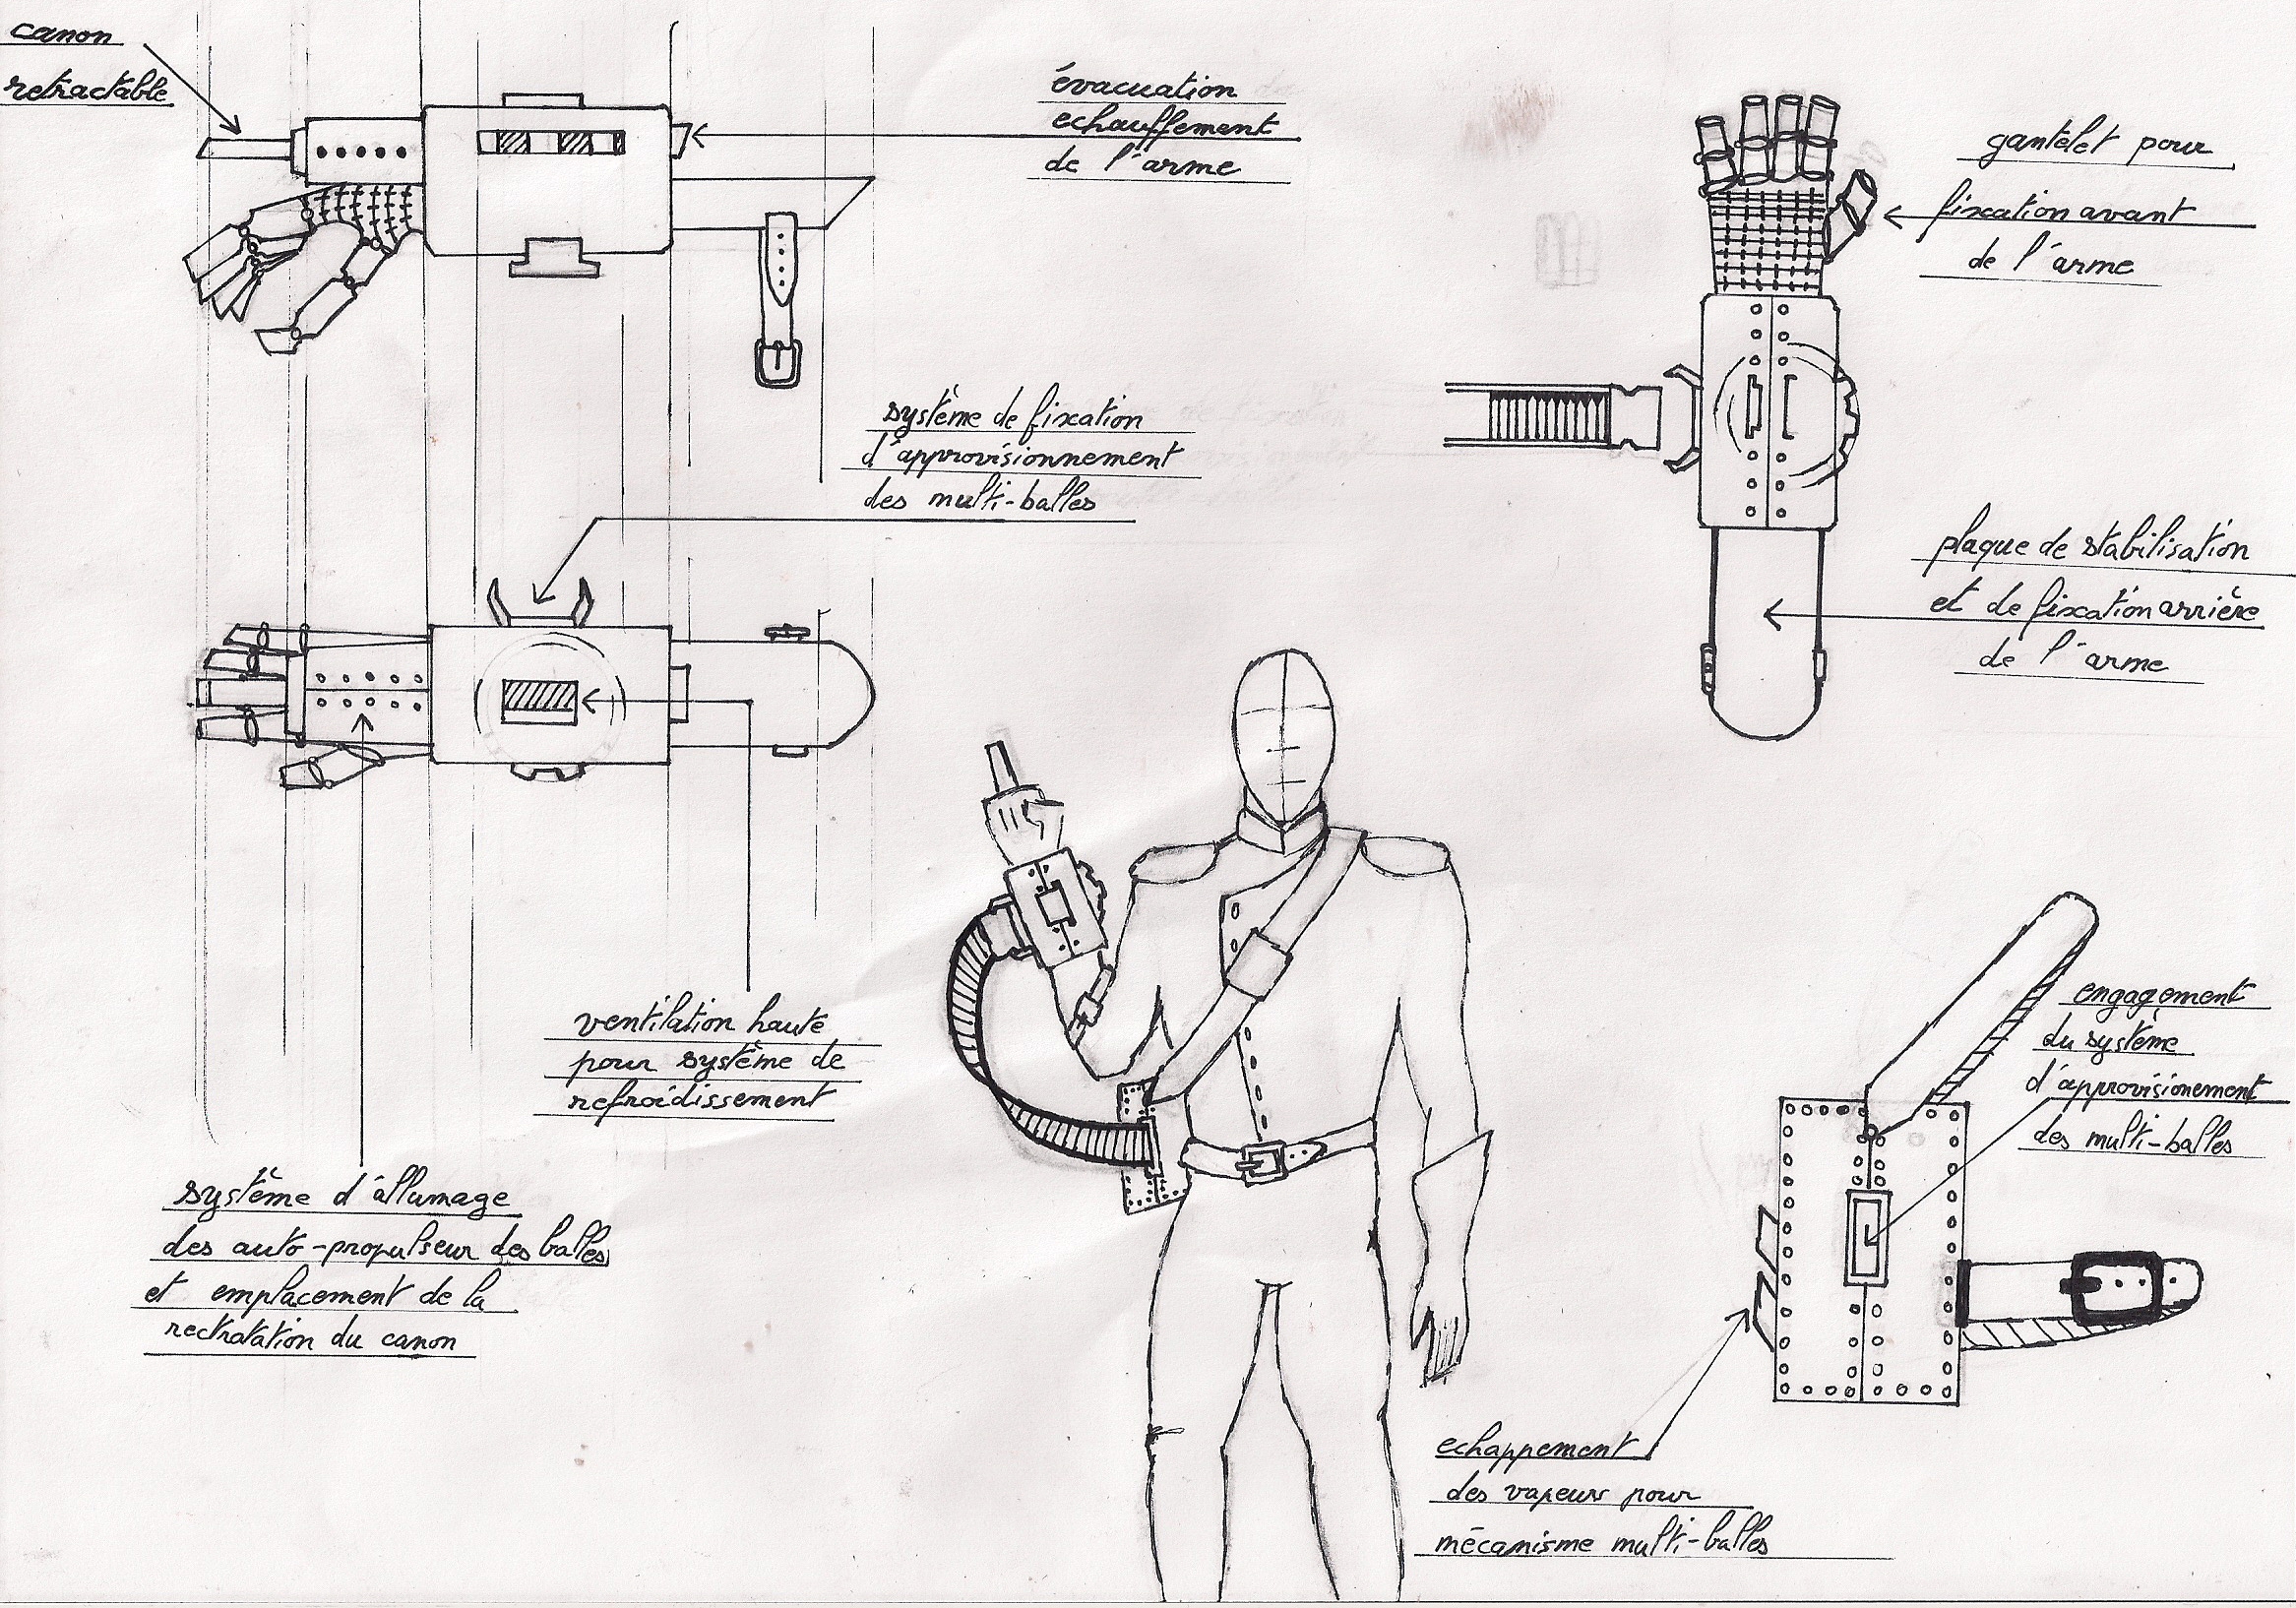 canon
retractable
évacuation
echauffement
de l'arme
gantelet pour
fixation avant
de l'arme
système de fixation
d'approvisionnement
des multi-balles
plaque de stabilisation
et de fixation arrière
de l'arme
ventilation haute
pour système de
refroidissement
engagement
du système
d'approvisionement
des multi-balles
système d'allumage
des auto-propulseur des balles
et emplacement de la
rectratation du canon
echappement
des vapeurs pour
mécanisme multi-balles